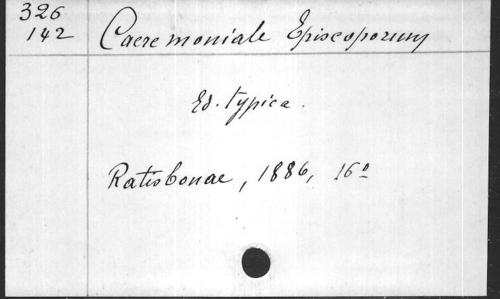 326
142 Caeremoniale Episcoporum
Ed. typica.
Ratisbonae, 1886, 16º